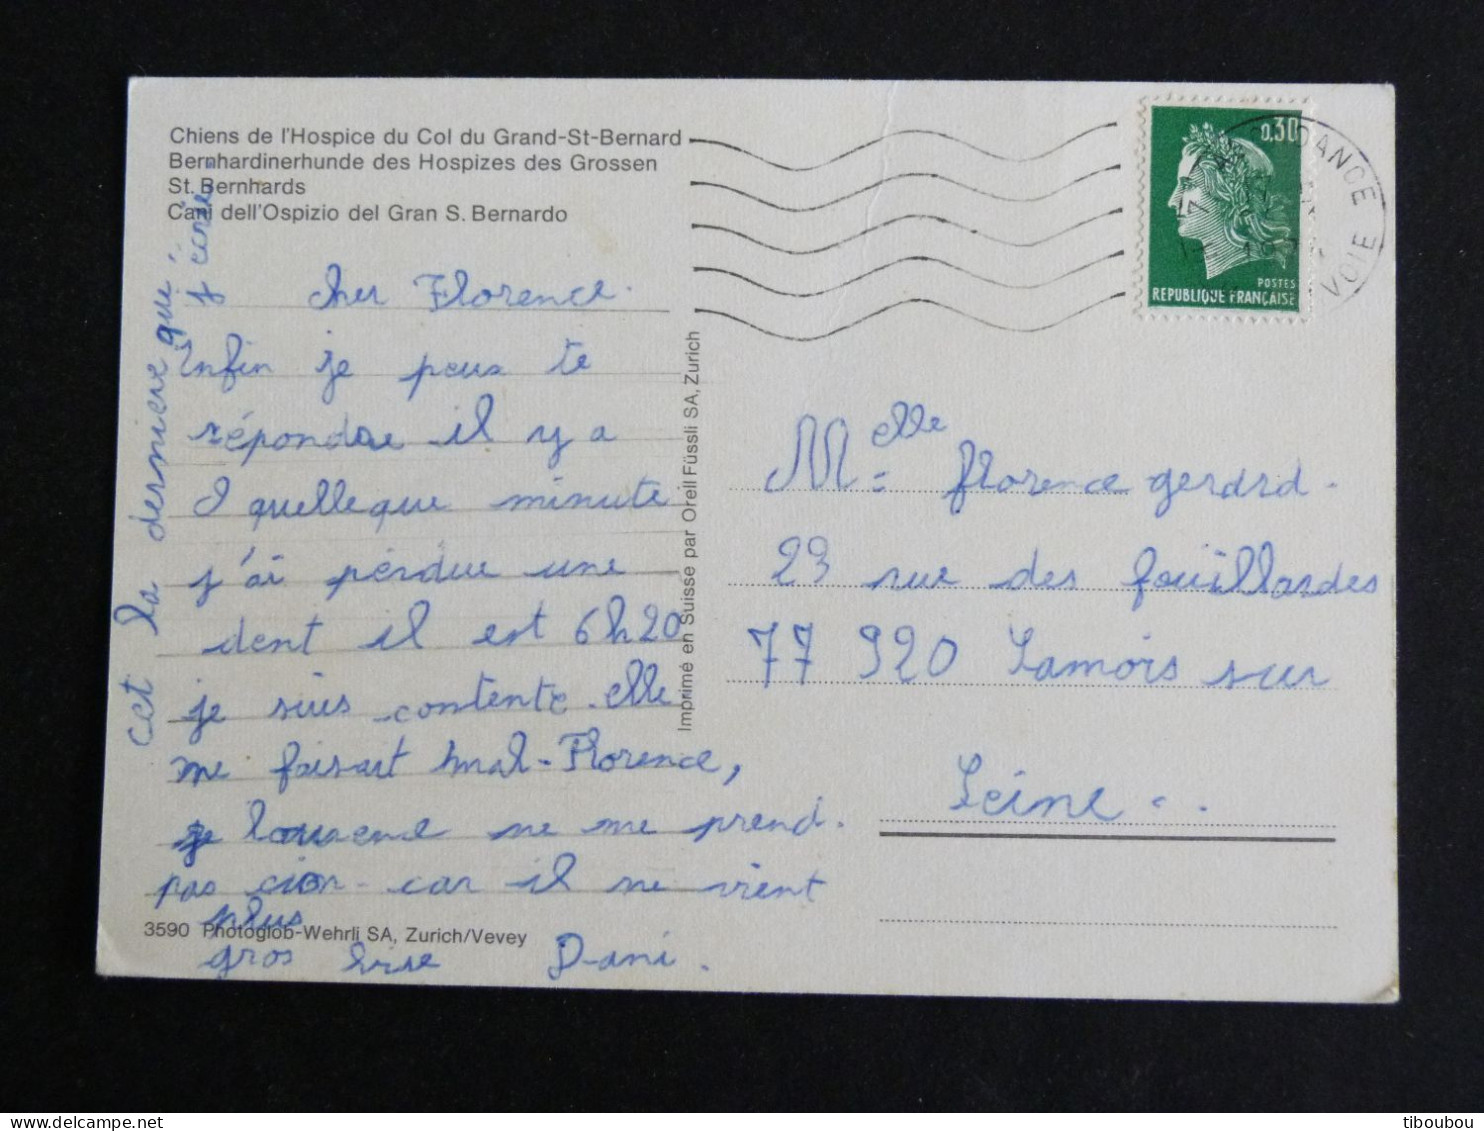 Chiens de l'Hospice du Col du Grand-St-Bernard
Bernhardinerhunde des Hospizes des Grossen
St. Bernhards
Cani dell'Ospizio del Gran S. Bernardo
cher Florence.
Enfin je peux te
répondre il y a
quelleque minute
j'ai perdue une
dent il est 6h20
je suis contente elle
me faisait mal - Florence,
je ne me prend.
pas car il ne vient
plus
gros bise Dani.
cet la derniere que
j'écrie
3590 Photoglob-Wehrli SA, Zurich/Vevey
Imprimé en Suisse par Orell Füssli SA, Zurich
0,30
POSTES
REPUBLIQUE FRANÇAISE
DANCE
VOIE
Melle florence gerard.
23 rue des fouillardes
77 920 Samois sur
Seine...
tiboubou